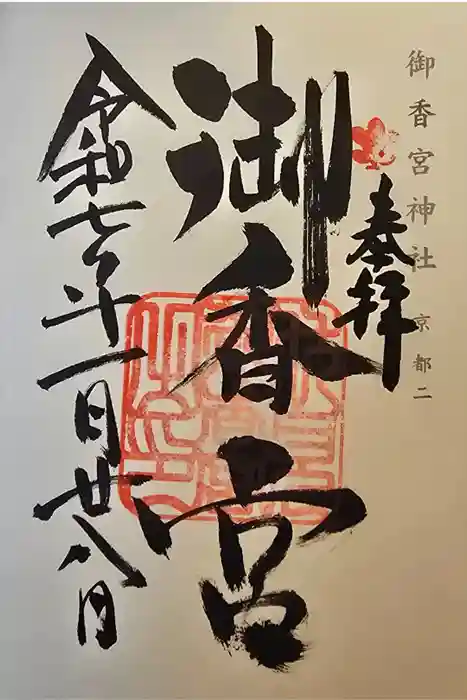 御香宮神社 京都二
奉拝
御香宮
令和七年一月廿八日